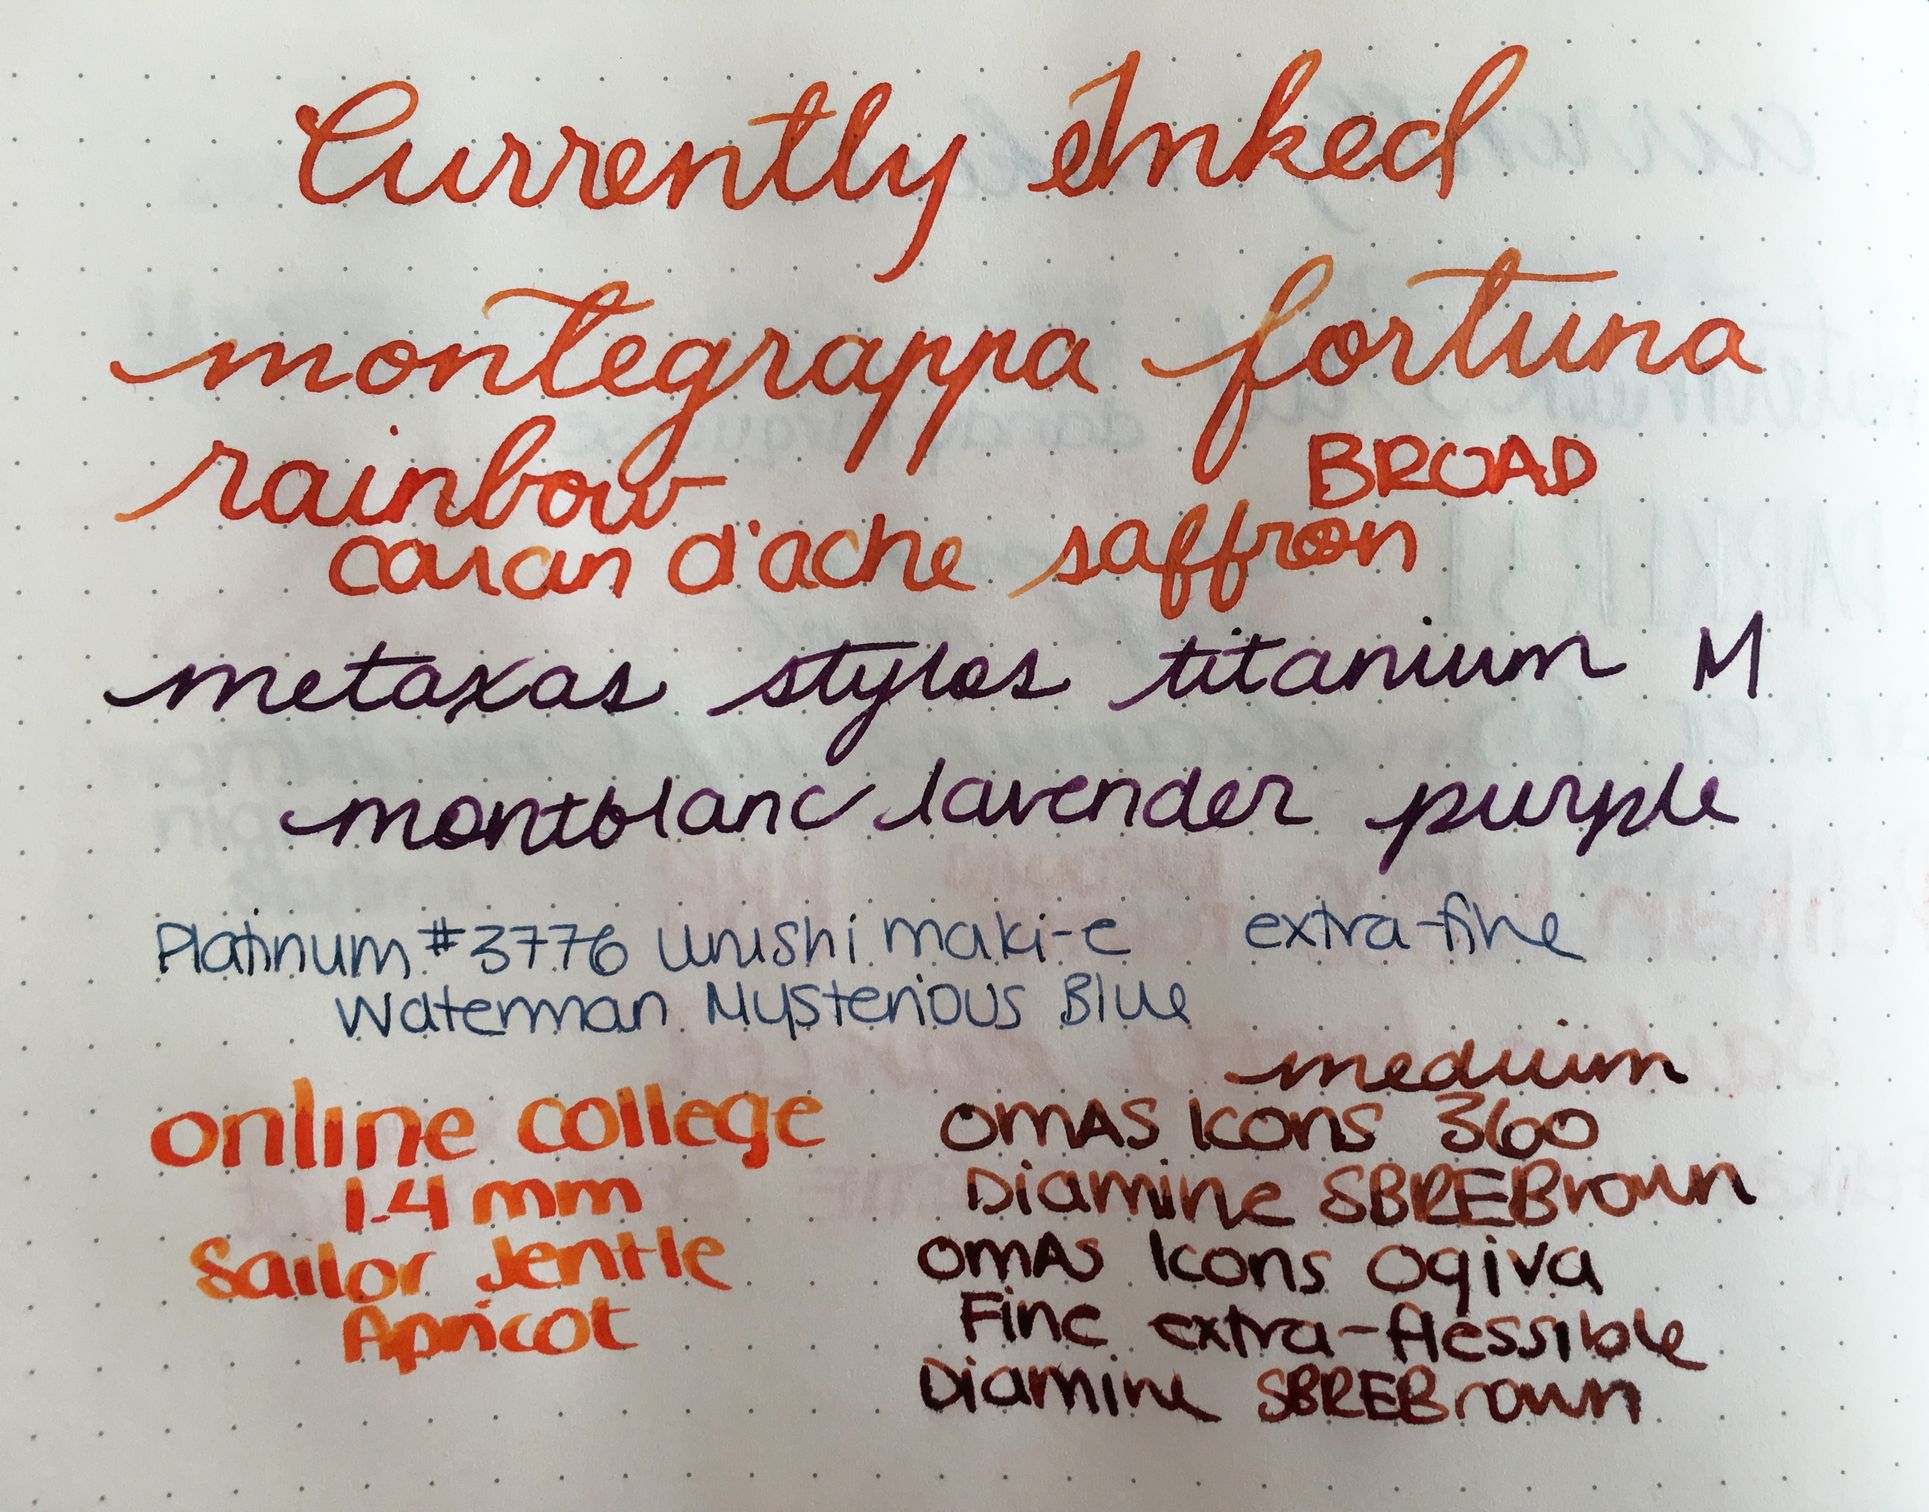 Currently Inked
montegrappa fortuna
rainbow BROAD
caran d'ache saffron
metaxas stylos titanium M
montblanc lavender purple
Platinum #3776 urushi maki-e extra-fine
Waterman Mysterious Blue
online college
1.4 mm
Sailor Jentle
Apricot
medium
OMAS Icons 360
Diamine SBREBrown
OMAS Icons Ogiva
Fine extra-flessible
Diamine SBREBrown